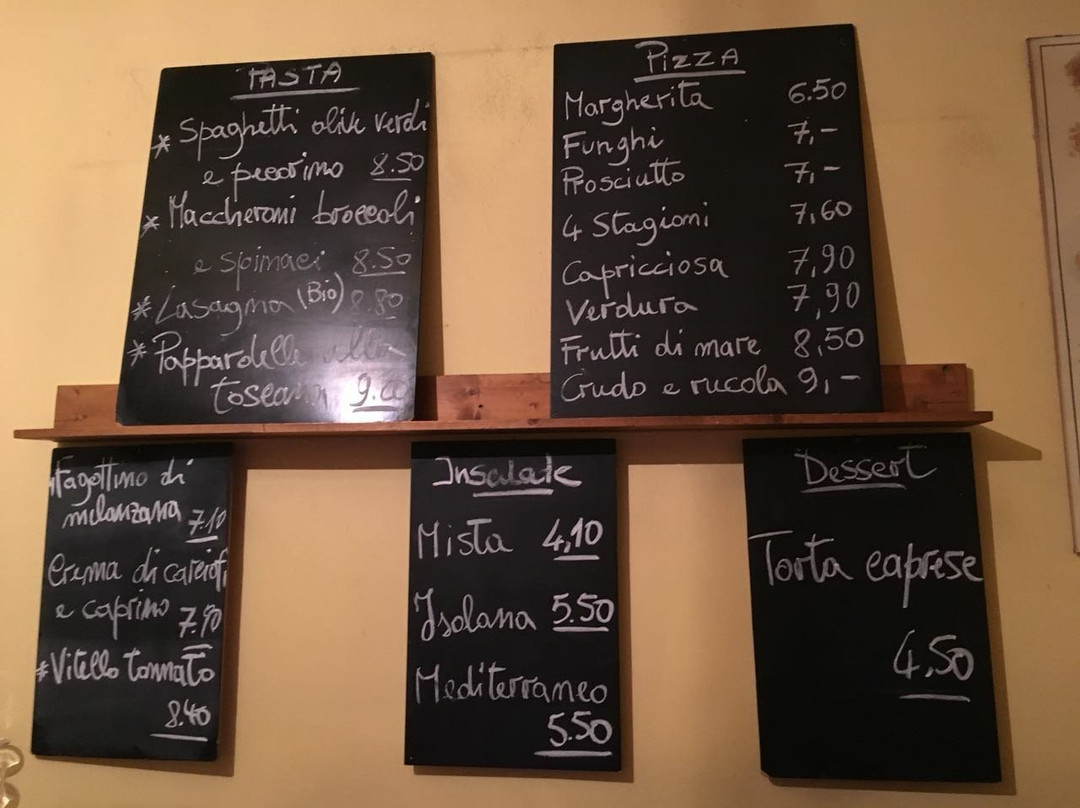 PASTA
* Spaghetti olive verdi
e pecorino 8.50
* Maccheroni broccoli
e spinaci 8.50
* Lasagna (Bio) 8.80
* Pappardelle alla
toscana
PIZZA
Margherita 6.50
Funghi 7,-
Prosciutto 7,-
4 Stagioni 7,60
Capricciosa 7,90
Verdura 7,90
Frutti di mare 8,50
Crudo e rucola 9,-
fagottino di
melanzana 7.10
Crema di carciofi
e caprino 7.90
* Vitello tonnato
8.40
Insalate
Mista 4,10
Isolana 5.50
Mediterraneo
5.50
Dessert
Torta caprese
4,50